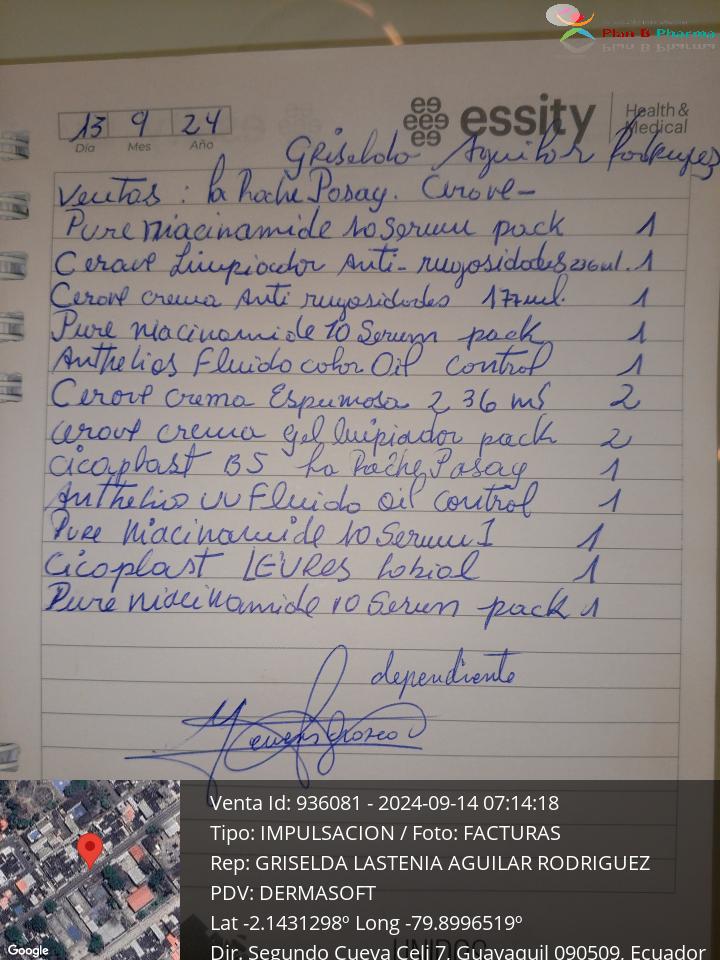 Plan B Pharma
13 9 24
Día Mes Año
essity Health & Medical
Griselda Aguilar Rodriguez
Ventas : la Roche Posay. Cerave -
Pure niacinamide 10 Serum pack 1
Cerave Limpiador Anti-rugosidades 236ml. 1
Cerave crema Anti rugosidades 177ml. 1
Pure niacinamide 10 Serum pack 1
Anthelios Fluido color Oil control 1
Cerave crema Espumosa 236 ml 2
Cerave crema gel limpiador pack 2
Cicaplast B5 La Roche Posay 1
Anthelios UV Fluido Oil control 1
Pure Niacinamide 10 Serum 1 1
Cicaplast LEVRES Labial 1
Pure niacinamide 10 Serum pack 1
dependiente
Venta Id: 936081 - 2024-09-14 07:14:18
Tipo: IMPULSACION / Foto: FACTURAS
Rep: GRISELDA LASTENIA AGUILAR RODRIGUEZ
PDV: DERMASOFT
Lat -2.1431298º Long -79.8996519º
Dir. Segundo Cueva Celi 7, Guayaquil 090509, Ecuador
Google